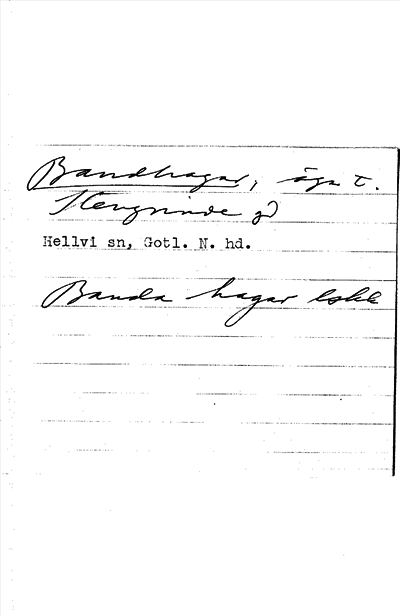 Bandhagar, äga t.
Stengrinde gd
Hellvi sn, Gotl. N. hd.
Banda hagar lskk